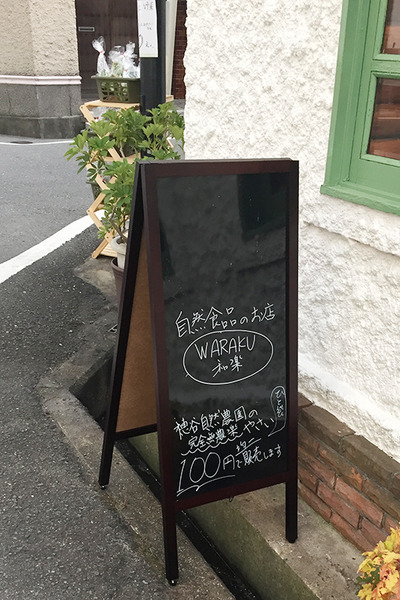 自然食品のお店
WARAKU
和楽
自然農園の
完全無農薬やさい
100円で販売します